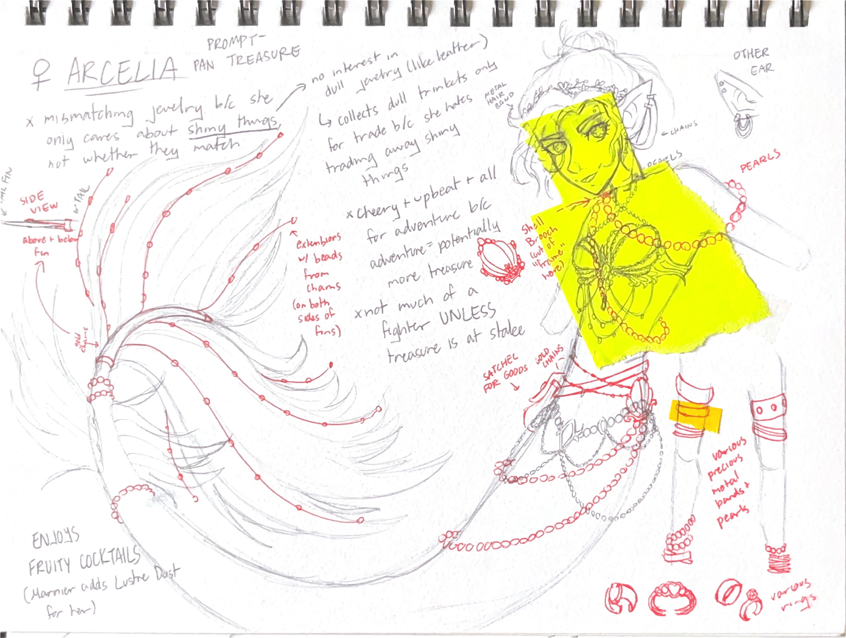 PROMPT-
PAN TREASURE
♀ ARCELIA
x mismatching jewelry b/c she
only cares about shiny things,
not whether they match
→ no interest in
dull jewelry (like leather)
↳ collects dull trinkets only
for trade b/c she hates
trading away shiny
things
x cheery + upbeat + all
for adventure b/c
adventure = potentially
more treasure
x not much of a
fighter UNLESS
treasure is at stake
METAL
HAIR
BAND
OTHER
EAR
← CHAINS
PEARLS
Shell
Brooch
(out of
"frame"
here)
SIDE
VIEW
TAIL
above + below
fin
gold
extensions
w/ beads
from
chains
(on both
sides of
fins)
SATCHEL
FOR GOODS
GOLD
CHAINS
various
precious
metal
bands +
pearls
various
rings
ENJOYS
FRUITY COCKTAILS
(Marnier adds Lustre Dust
for her)